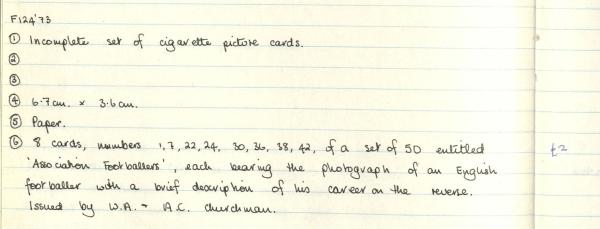 F124'73
① Incomplete set of cigarette picture cards.
②
③
④ 6.7cm. x 3.6cm.
⑤ Paper.
⑥ 8 cards, numbers 1, 7, 22, 24, 30, 36, 38, 42, of a set of 50 entitled
'Association Footballers', each bearing the photograph of an English
footballer with a brief description of his career on the reverse.
Issued by W.A. + A.C. Churchman.
£2